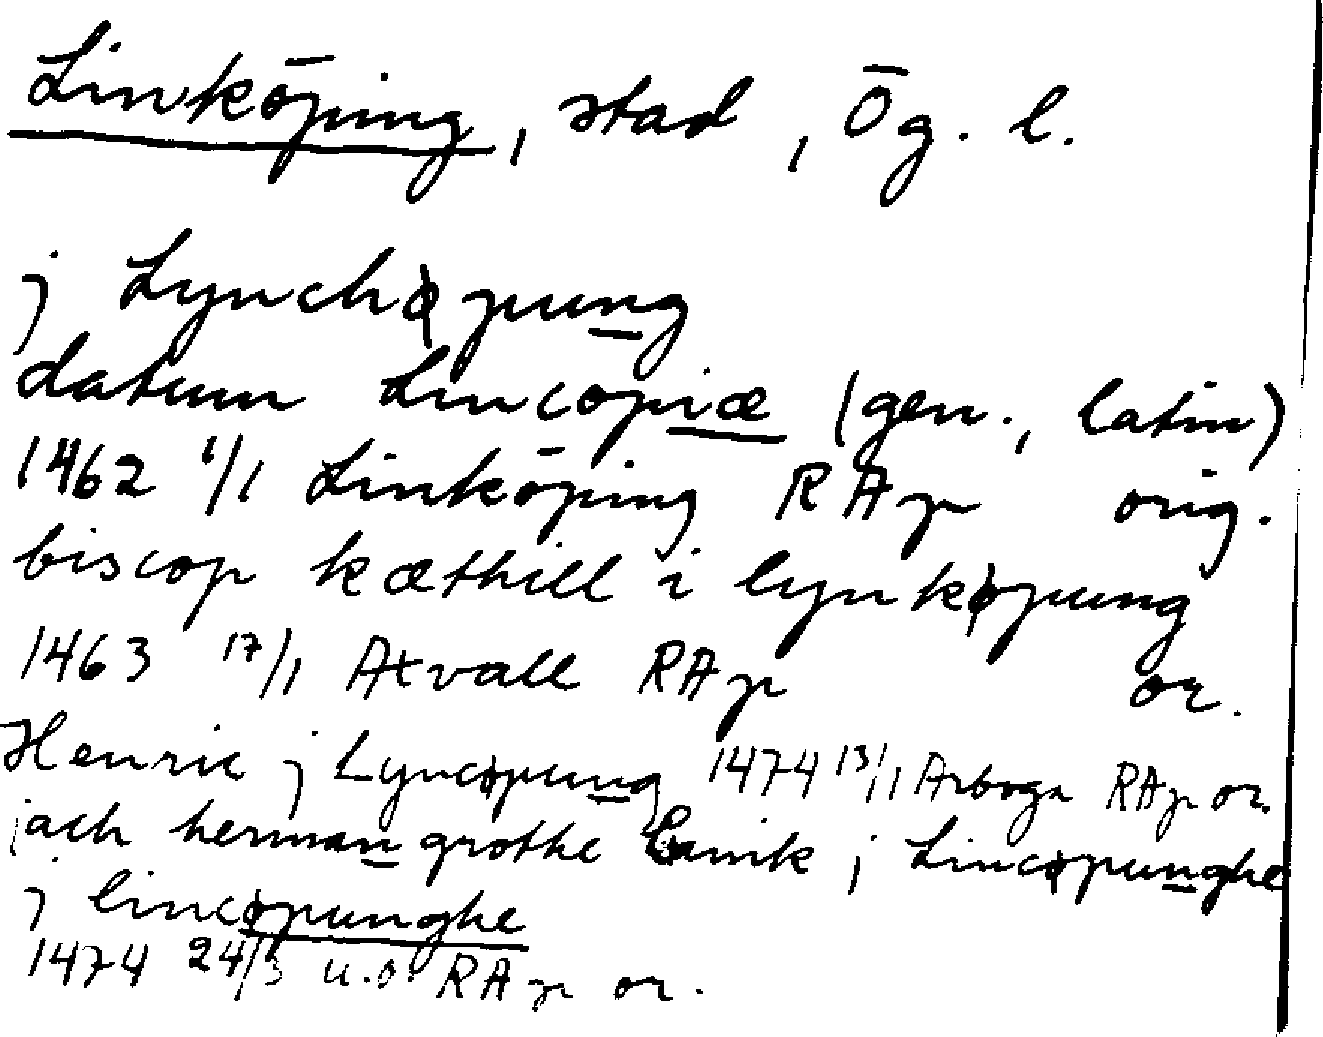 Linköping, stad, Ög. l.
j Lynchøpung
datum Lincopiæ (gen., latin)
1462 1/1 Linköping RAp orig.
biscop kæthill i lynkøpung
1463 17/1 Axvall RAp or.
Henric j Lyncøpung 1474 13/1 Arboga RAp or.
jach herman grothe Canik j Lincøpunghe
j lincøpunghe
1474 24/3 u.o. RAp or.